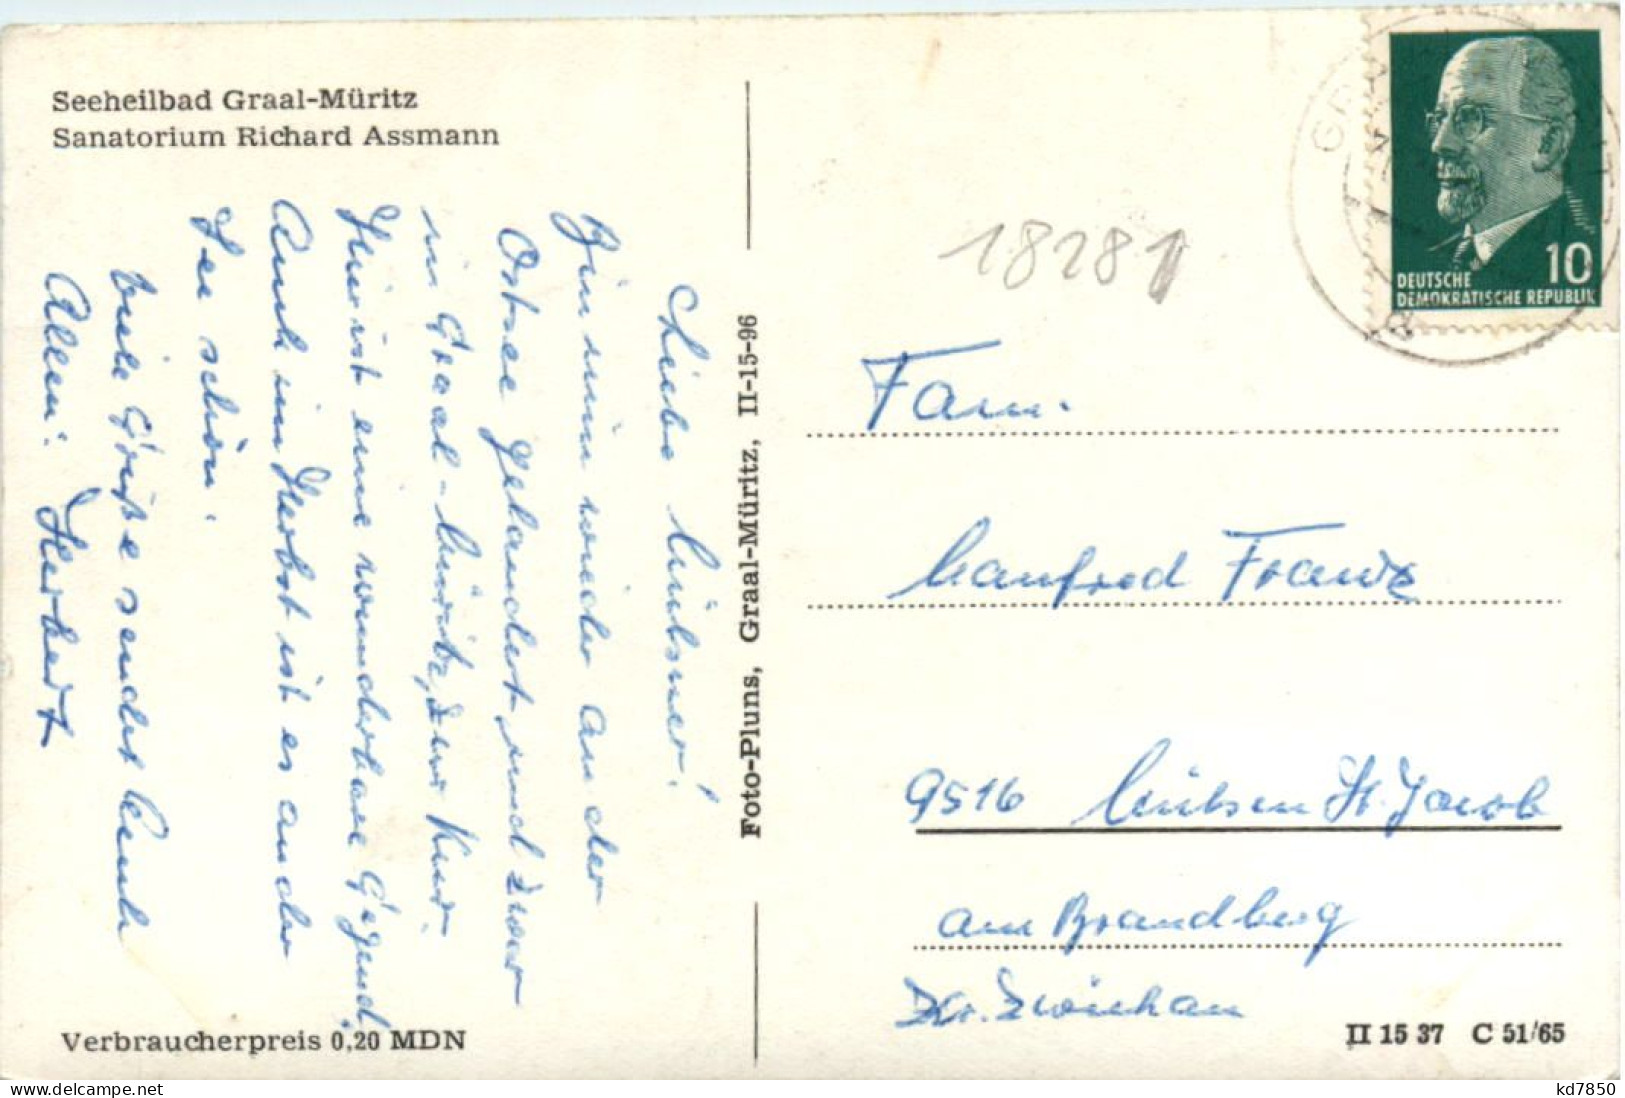 Seeheilbad Graal-Müritz
Sanatorium Richard Assmann
Liebe Mülsner!
Bin nun wieder an der
Ostsee gelandert, und zwar
in Graal-Müritz, zur Kur.
Hier ist eine wunderbare Gegend.
Auch im Herbst ist es an der
See schön.
Viele Grüße sendet Euch
Allen: Herbert
Verbraucherpreis 0,20 MDN
Foto-Pluns, Graal-Müritz, II-15-96
18281
DEUTSCHE
DEMOKRATISCHE REPUBLIK
10
Fam.
Manfred Franz
9516 Mülsen St. Jacob
am Brandberg
Kr. Zwickau
II 15 37 C 51/65
kd7850